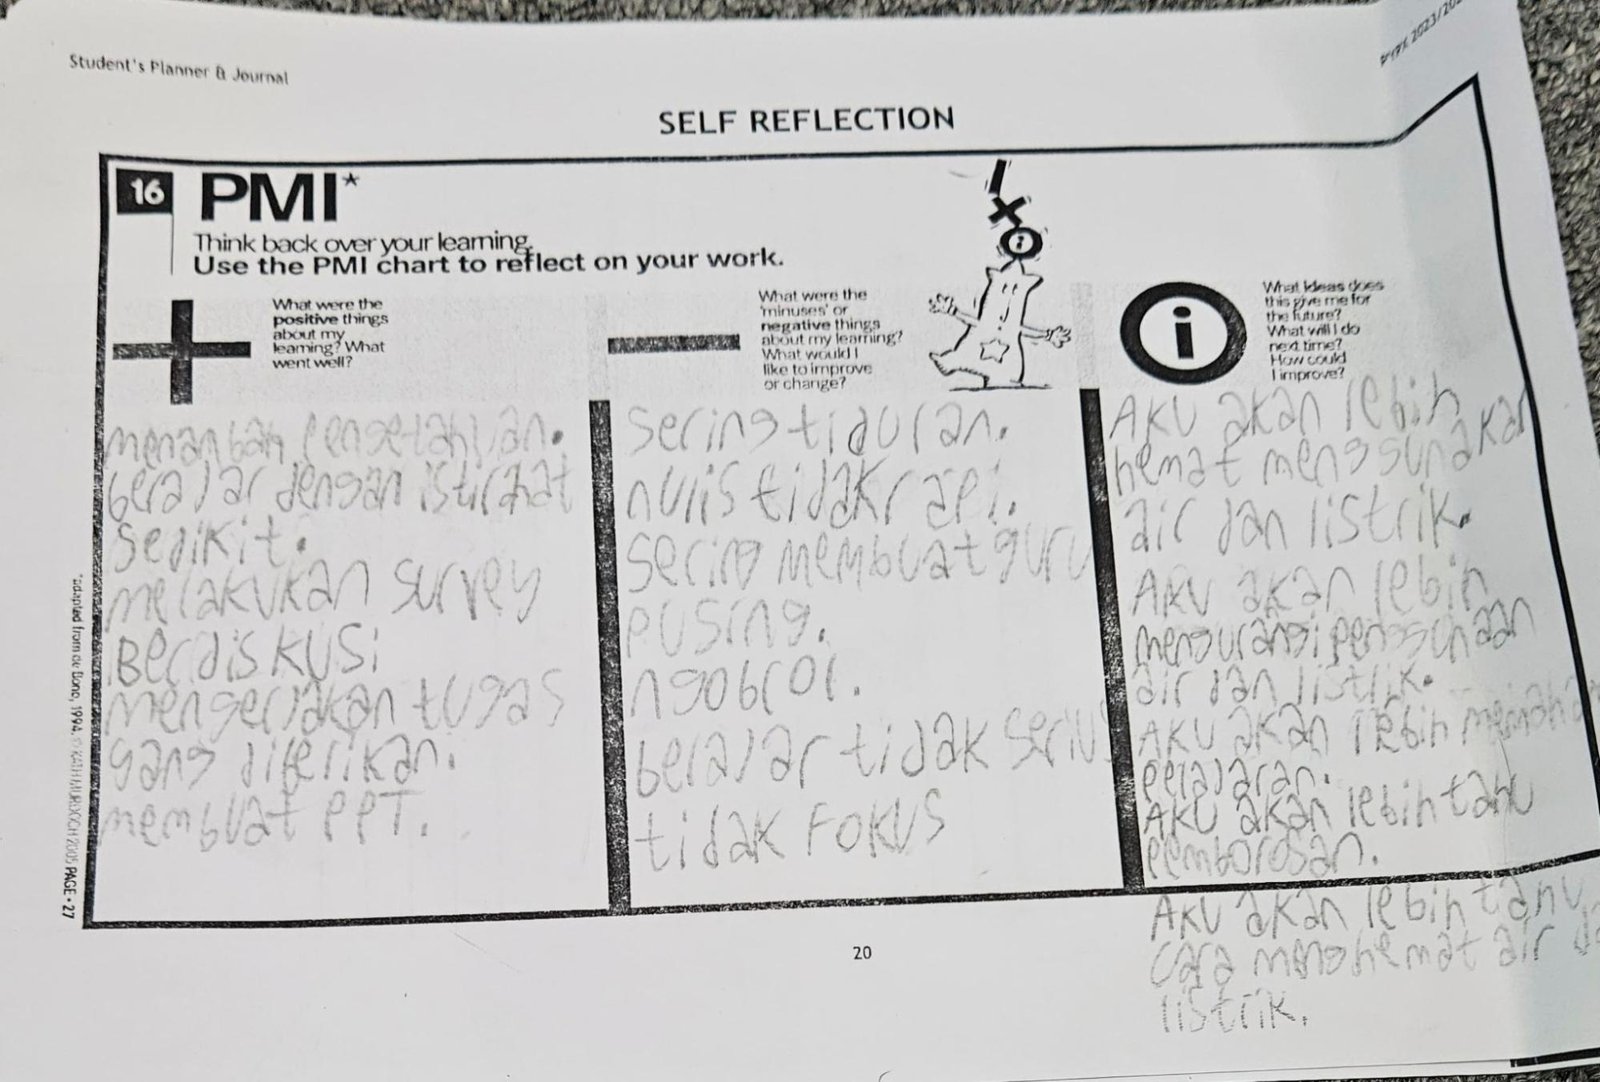 Student's Planner & Journal
SELF REFLECTION
16 PMI*
Think back over your learning.
Use the PMI chart to reflect on your work.
What were the
positive things
about my
learning? What
went well?
menambah pengetahuan.
belajar dengan istirahat
sedikit.
melakukan survey
Berdiskusi
mengerjakan tugas
yang diberikan.
membuat PPT.
What were the
'minuses' or
negative things
about my learning?
What would I
like to improve
or change?
sering tiduran.
nulis tidak rapi.
sering membuat guru
pusing.
ngobrol.
belajar tidak serius
tidak Fokus
i
What ideas does
this give me for
the future?
What will I do
next time?
How could
I improve?
AKU akan lebih
hemat menggunakan
air dan listrik.
AKU akan lebih
mengurangi penggunaan
air dan listrik.
AKU akan lebih
pelajaran.
AKU akan lebih tahu
pemborosan.
AKU akan lebih tahu
cara menghemat air
listrik.
*adapted from de Bono, 1994. © KATH MURDOCH 2005 PAGE • 27
20